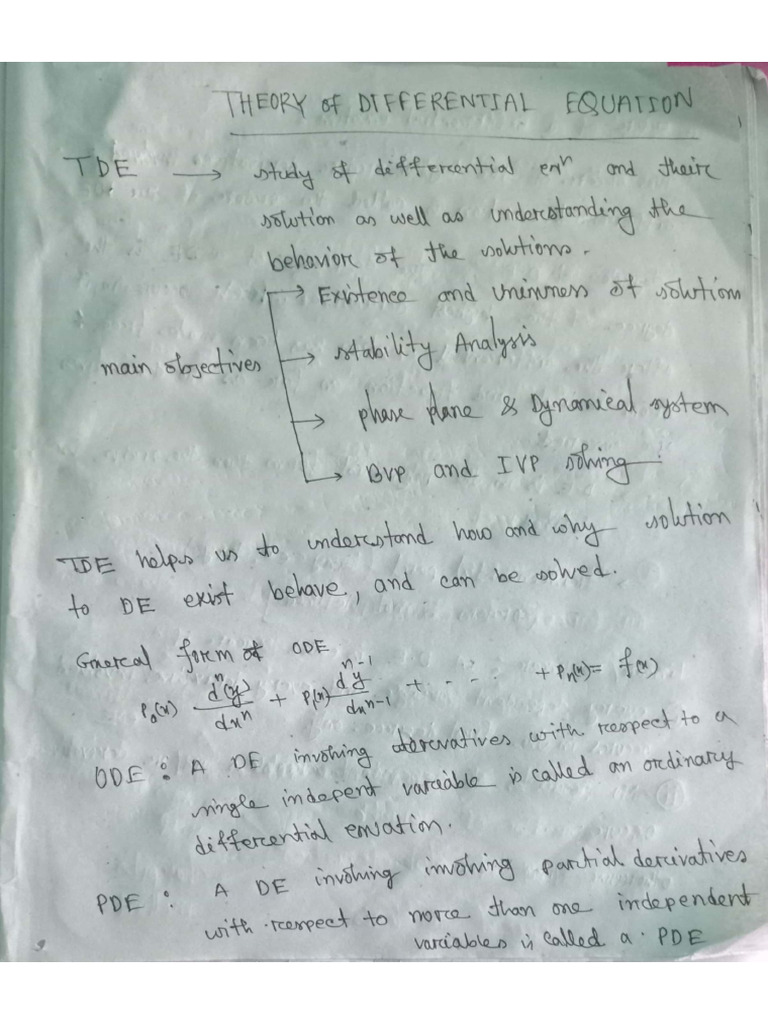 THEORY of DIFFERENTIAL EQUATION
TDE → study of differential eqⁿ and their
solution as well as understanding the
behavior of the solutions.
→ Existence and Uniqness of solution
main objectives → stability Analysis
→ phase plane & Dynamical system
→ BVP and IVP solving.
TDE helps us to understand how and why solution
to DE exist behave, and can be solved.
Gneral form of ODE
P₀(x) dⁿ(y)/dxⁿ + P₁(x) dⁿ⁻¹y/dxⁿ⁻¹ + - . . . . + Pₙ(x) = f(x)
ODE : A DE involving derivatives with respect to a
single indepent variable is called an ordinary
differential equation.
PDE : A DE involving involving partial derivatives
with respect to more than one independent
variables is called a PDE